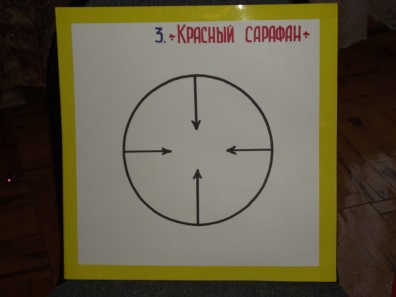 3. «Красный сарафан»